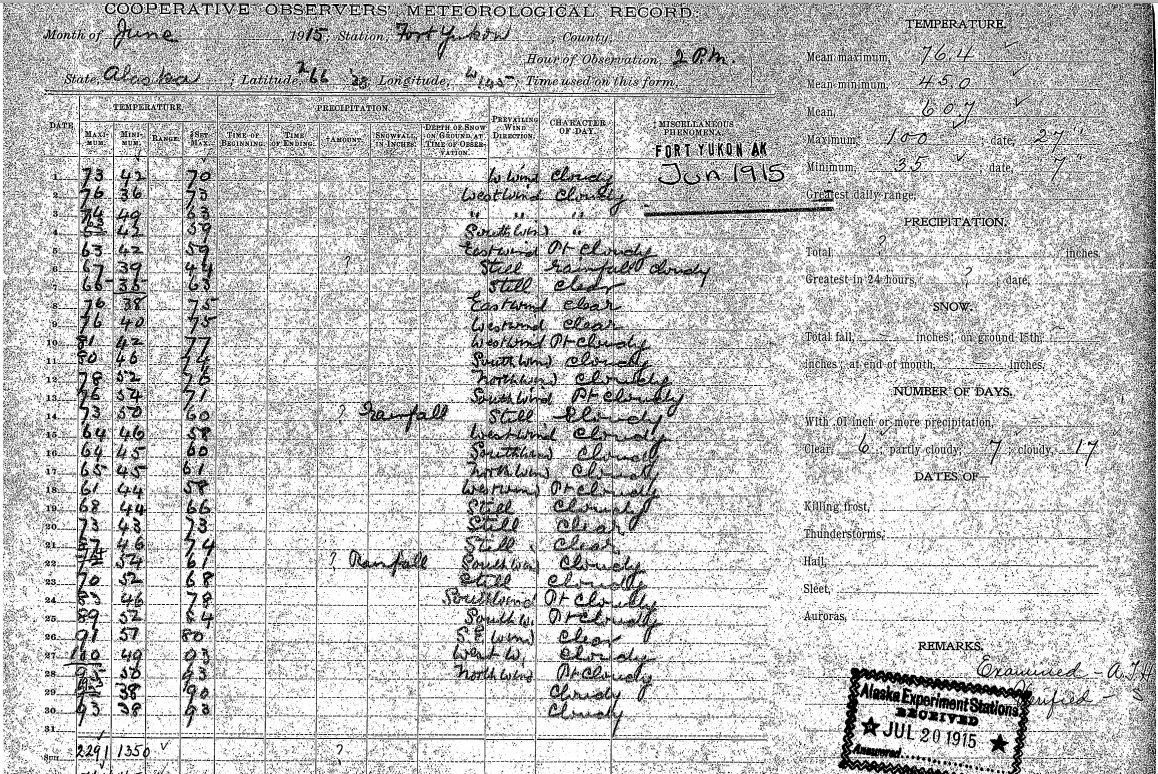 COOPERATIVE OBSERVERS' METEOROLOGICAL RECORD.
Month of June, 1915; Station, Fort Yukon; County,
Hour of Observation, 2 P.M.
State, Alaska; Latitude, 66 33 Longitude, W 145 Time used on this form,
DATE TEMPERATURE. PRECIPITATION. PREVAILING WIND DIRECTION. CHARACTER OF DAY. MISCELLANEOUS PHENOMENA.
MAXIMUM. MINIMUM. RANGE. SET MAX. TIME OF BEGINNING. TIME OF ENDING. AMOUNT. SNOWFALL, IN INCHES. DEPTH OF SNOW ON GROUND AT TIME OF OBSERVATION.
FORT YUKON AK
Jun 1915
1 73 42 70 W Wind Cloudy
2 76 36 73 West wind Cloudy
3 74 49 63 " " "
4 42 59 South Wind "
5 63 42 59 East wind Pt Cloudy
6 67 39 44 ? Still rainfall cloudy
7 66 35 63 Still Clear
8 76 38 75 East wind clear
9 76 40 75 West wind clear
10 81 42 77 West wind Pt Cloudy
11 80 46 South Wind cloudy
12 78 52 North wind Cloudy
13 76 54 71 South wind Pt Cloudy
14 73 50 60 ? Rainfall Still Cloudy
15 64 46 58 West wind Cloudy
16 64 45 60 South wind Cloudy
17 65 45 61 North Wind Cloudy
18 61 44 58 West wind Pt Cloudy
19 68 44 66 Still Cloudy
20 73 43 73 Still Clear
21 46 74 Still Clear
22 54 61 ? Rainfall South wind Cloudy
23 70 52 68 Still Cloudy
24 83 46 78 South wind Pt Cloudy
25 89 52 84 South w. Pt Cloudy
26 91 57 80 S.E. wind Clear
27 100 49 93 West W. Cloudy
28 50 93 North Wind Pt Cloudy
29 38 90 Cloudy
30 93 38 93 Cloudy
31
Sum 2291 1350 ?
TEMPERATURE.
Mean maximum, 76.4
Mean minimum, 45.0
Mean, 60.7
Maximum, 100 date, 27"
Minimum, 35 date, 7"
Greatest daily range,
PRECIPITATION.
Total ? inches
Greatest in 24 hours, ? ; date,
SNOW.
Total fall, inches; on ground 15th,
inches; at end of month, inches.
NUMBER OF DAYS.
With .01 inch or more precipitation,
Clear, 6; partly cloudy, 7; cloudy, 17
DATES OF—
Killing frost,
Thunderstorms,
Hail,
Sleet,
Auroras,
REMARKS.
Examined - A.T.H
Verified -
Alaska Experiment Stations
RECEIVED
★ JUL 20 1915 ★
Answered